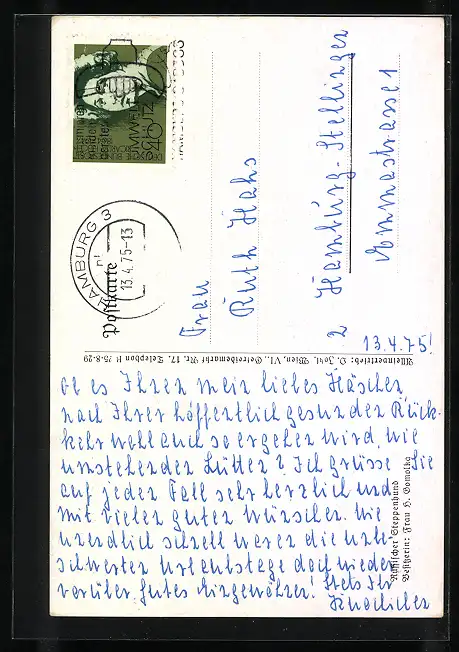 HAMBURG 3
13.4.75-13
Postkarte
Frau
Ruth Hahs
2 Hamburg-Stellingen
Emmastrasse 1
Alleinvertrieb: O. Zöll, Wien, VI., Getreidemarkt Nr. 17, Telephon B 25-8-29
13.4.75!
Ob es Ihnen mein liebes Häschen
nach Ihrer hoffentlich gesunden Rück-
kehr wohl auch so ergehen wird, wie
umstehenden Lütten? Ich grüsse Sie
auf jeden Fall sehr herzlich und
mit vielen guten Wünschen. Wie
unendlich schnell waren die
schwerten Urlaubstage doch wieder
vorüber. Gutes Eingewöhnen! Stets Ihr
Russischer Steppenhund
Besitzerin: Frau H. Gomolka